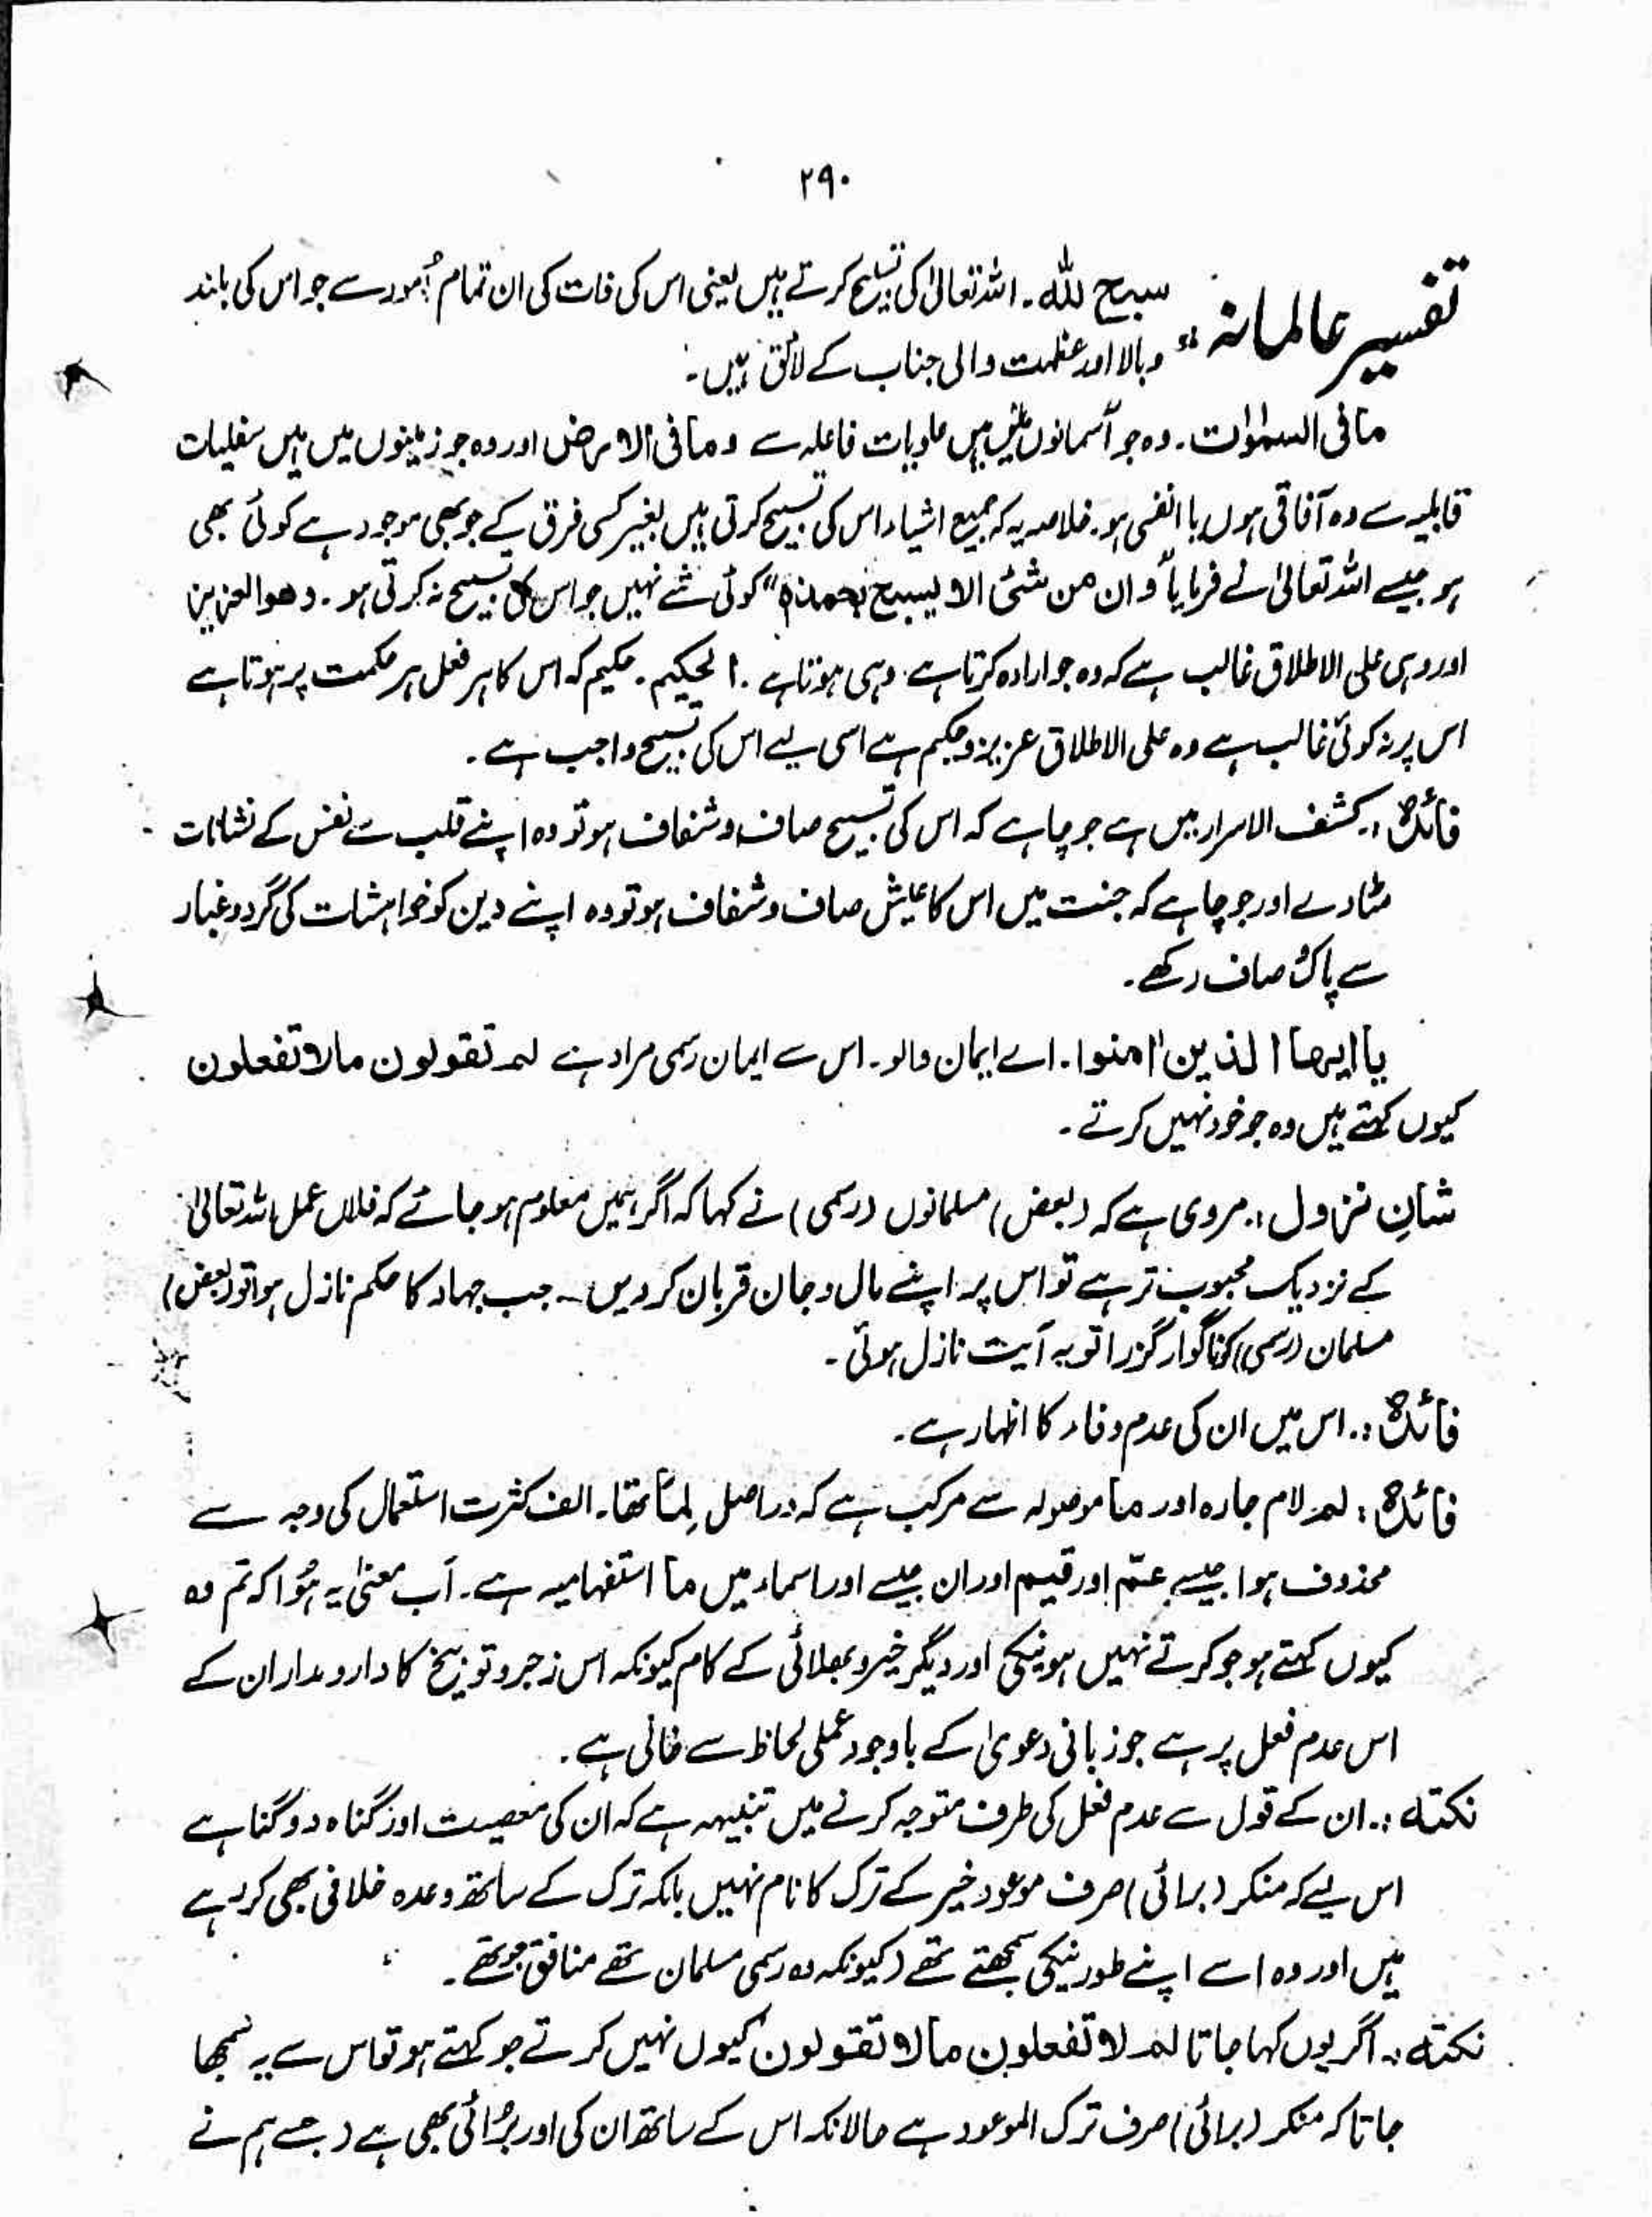 ۲۹۰
تفسیر عالمانہ سبح للہ۔ اللہ تعالیٰ کی تسبیح کرتے ہیں یعنی اس کی ذات کی ان تمام اُمور سے جو اس کی بلند
وبالا اور عظمت والی جناب کے لائق نہیں۔
مافی السمٰوٰت۔ وہ جو آسمانوں میں ہیں علویات فاعلہ سے ومافی الارض اور وہ جو زمینوں میں ہیں سفلیات
قابلیہ سے وہ آفاقی ہوں یا انفسی ہو۔ خلاصہ یہ کہ جمیع اشیاء اس کی تسبیح کرتی ہیں بغیر کسی فرق کے جو بھی موجود ہے کوئی بھی
ہو جیسے اللہ تعالیٰ نے فرمایا "وان من شئ الا یسبح بحمدہ" کوئی شے نہیں جو اس کی تسبیح نہ کرتی ہو۔ وھو العزیز
اور وہی علی الاطلاق غالب ہے کہ وہ جو ارادہ کرتا ہے وہی ہوتا ہے۔ الحکیم۔ حکیم کہ اس کا ہر فعل ہر حکمت پر ہوتا ہے
اس پر نہ کوئی غالب ہے وہ علی الاطلاق عزیز و حکیم ہے اسی لیے اس کی تسبیح واجب ہے۔
فائدہ :۔ کشف الاسرار میں ہے جو چاہے کہ اس کی تسبیح صاف و شفاف ہو تو وہ اپنے قلب سے نفس کے نشانات
مٹا دے اور جو چاہے کہ جنت میں اس کا عیش صاف و شفاف ہو تو وہ اپنے دین کو خواہشات کی گرد و غبار
سے پاک و صاف رکھے۔
یاایھا الذین اٰمنوا۔ اے ایمان والو۔ اس سے ایمان رسمی مراد ہے لم تقولون مالا تفعلون
کیوں کہتے ہیں وہ جو خود نہیں کرتے۔
شانِ نزول :۔ مروی ہے کہ (بعض) مسلمانوں (رسمی) نے کہا کہ اگر ہمیں معلوم ہو جائے کہ فلاں عمل اللہ تعالیٰ
کے نزدیک محبوب تر ہے تو اس پر اپنے مال و جان قربان کر دیں۔ جب جہاد کا حکم نازل ہوا تو (بعض)
مسلمان (رسمی) کو ناگوار گزرا تو یہ آیت نازل ہوئی۔
فائدہ :۔ اس میں ان کی عدم وفاء کا اظہار ہے۔
فائدہ : لم لام جارہ اور ما موصولہ سے مرکب ہے کہ دراصل لِما تھا۔ الف کثرت استعمال کی وجہ سے
محذوف ہوا جیسے عمّ اور فیم اور ان جیسے اور اسماء میں ما استفہامیہ ہے۔ اَب معنیٰ یہ ہُوا کہ تم وہ
کیوں کہتے ہو جو کرتے نہیں ہو نیکی اور دیگر خیر و بھلائی کے کام کیونکہ اس زجر و توبیخ کا دارومدار ان کے
اس عدم فعل پر ہے جو زبانی دعویٰ کے باوجود عملی لحاظ سے خالی ہے۔
نکتہ :۔ ان کے قول سے عدم فعل کی طرف متوجہ کرنے میں تنبیہہ ہے کہ ان کی معصیت اور گناہ دوگنا ہے
اس لیے کہ منکر (برائی) صرف موعود خیر کے ترک کا نام نہیں بلکہ ترک کے ساتھ وعدہ خلافی بھی کر رہے
ہیں اور وہ اسے اپنے طور نیکی سمجھتے تھے (کیونکہ وہ رسمی مسلمان تھے منافق جو تھے۔
نکتہ :۔ اگر یوں کہا جاتا لم لا تفعلون مالا تقولون کیوں نہیں کرتے جو کہتے ہو تو اس سے یہ سمجھا
جاتا کہ منکر (برائی) صرف ترک الموعود ہے حالانکہ اس کے ساتھ ان کی اور بُرائی بھی ہے (جسے ہم نے